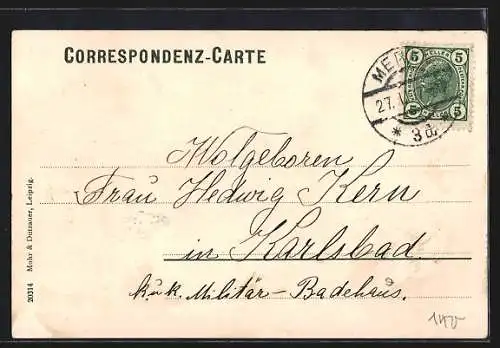 CORRESPONDENZ-CARTE
5 5
HELLER
5 5
MER
27.
* 3d *
Wolgeboren
Frau Hedwig Kern
in Karlsbad
k.u.k. Militär-Badehaus.
20314 Mohr & Dutzauer, Leipzig.